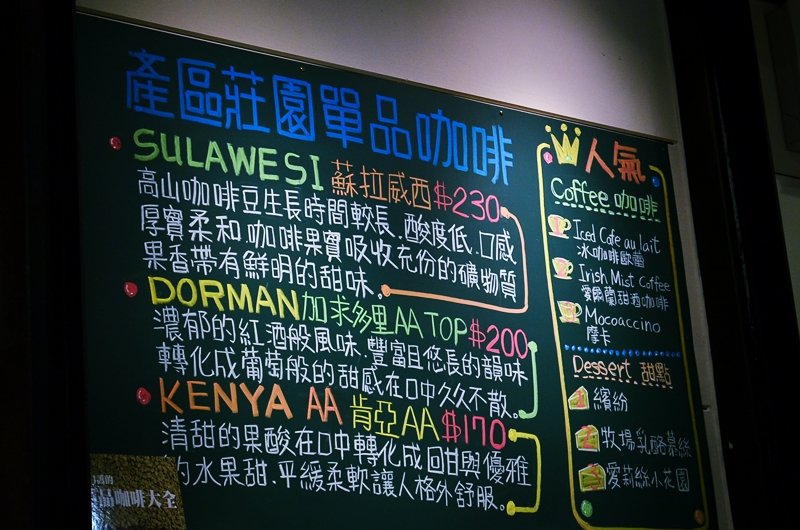 產區莊園單品咖啡
SULAWESI 蘇拉威西 $230
高山咖啡豆生長時間較長、酸度低、口感
厚實柔和、咖啡果實吸收充份的礦物質
果香帶有鮮明的甜味。
DORMAN 加求多里AA TOP $200
濃郁的紅酒般風味、豐富且悠長的韻味
轉化成葡萄般的甜感在口中久久不散。
KENYA AA 肯亞AA $170
清甜的果酸在口中轉化成回甘與優雅
的水果甜、平緩柔軟讓人格外舒服。
人氣
Coffee 咖啡
Iced Cafe au lait
冰咖啡歐蕾
Irish Mist Coffee
愛爾蘭甜酒咖啡
Mocoaccino
摩卡
Dessert 甜點
繽紛
牧場乳酪慕絲
愛莉絲小花園
品咖啡大全